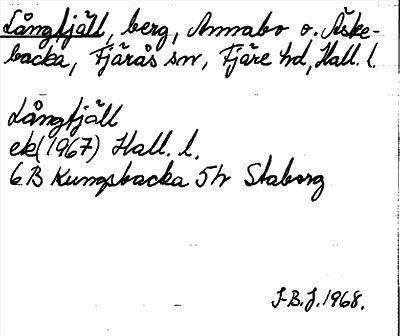 Långfjäll, berg, Annabo o. Äske-
backa, Fjärås sn, Fjäre hd, Hall. l.
Långfjäll
ek (1967) Hall. l.
6B Kungsbacka 5h Staborg
I-B.J. 1968.